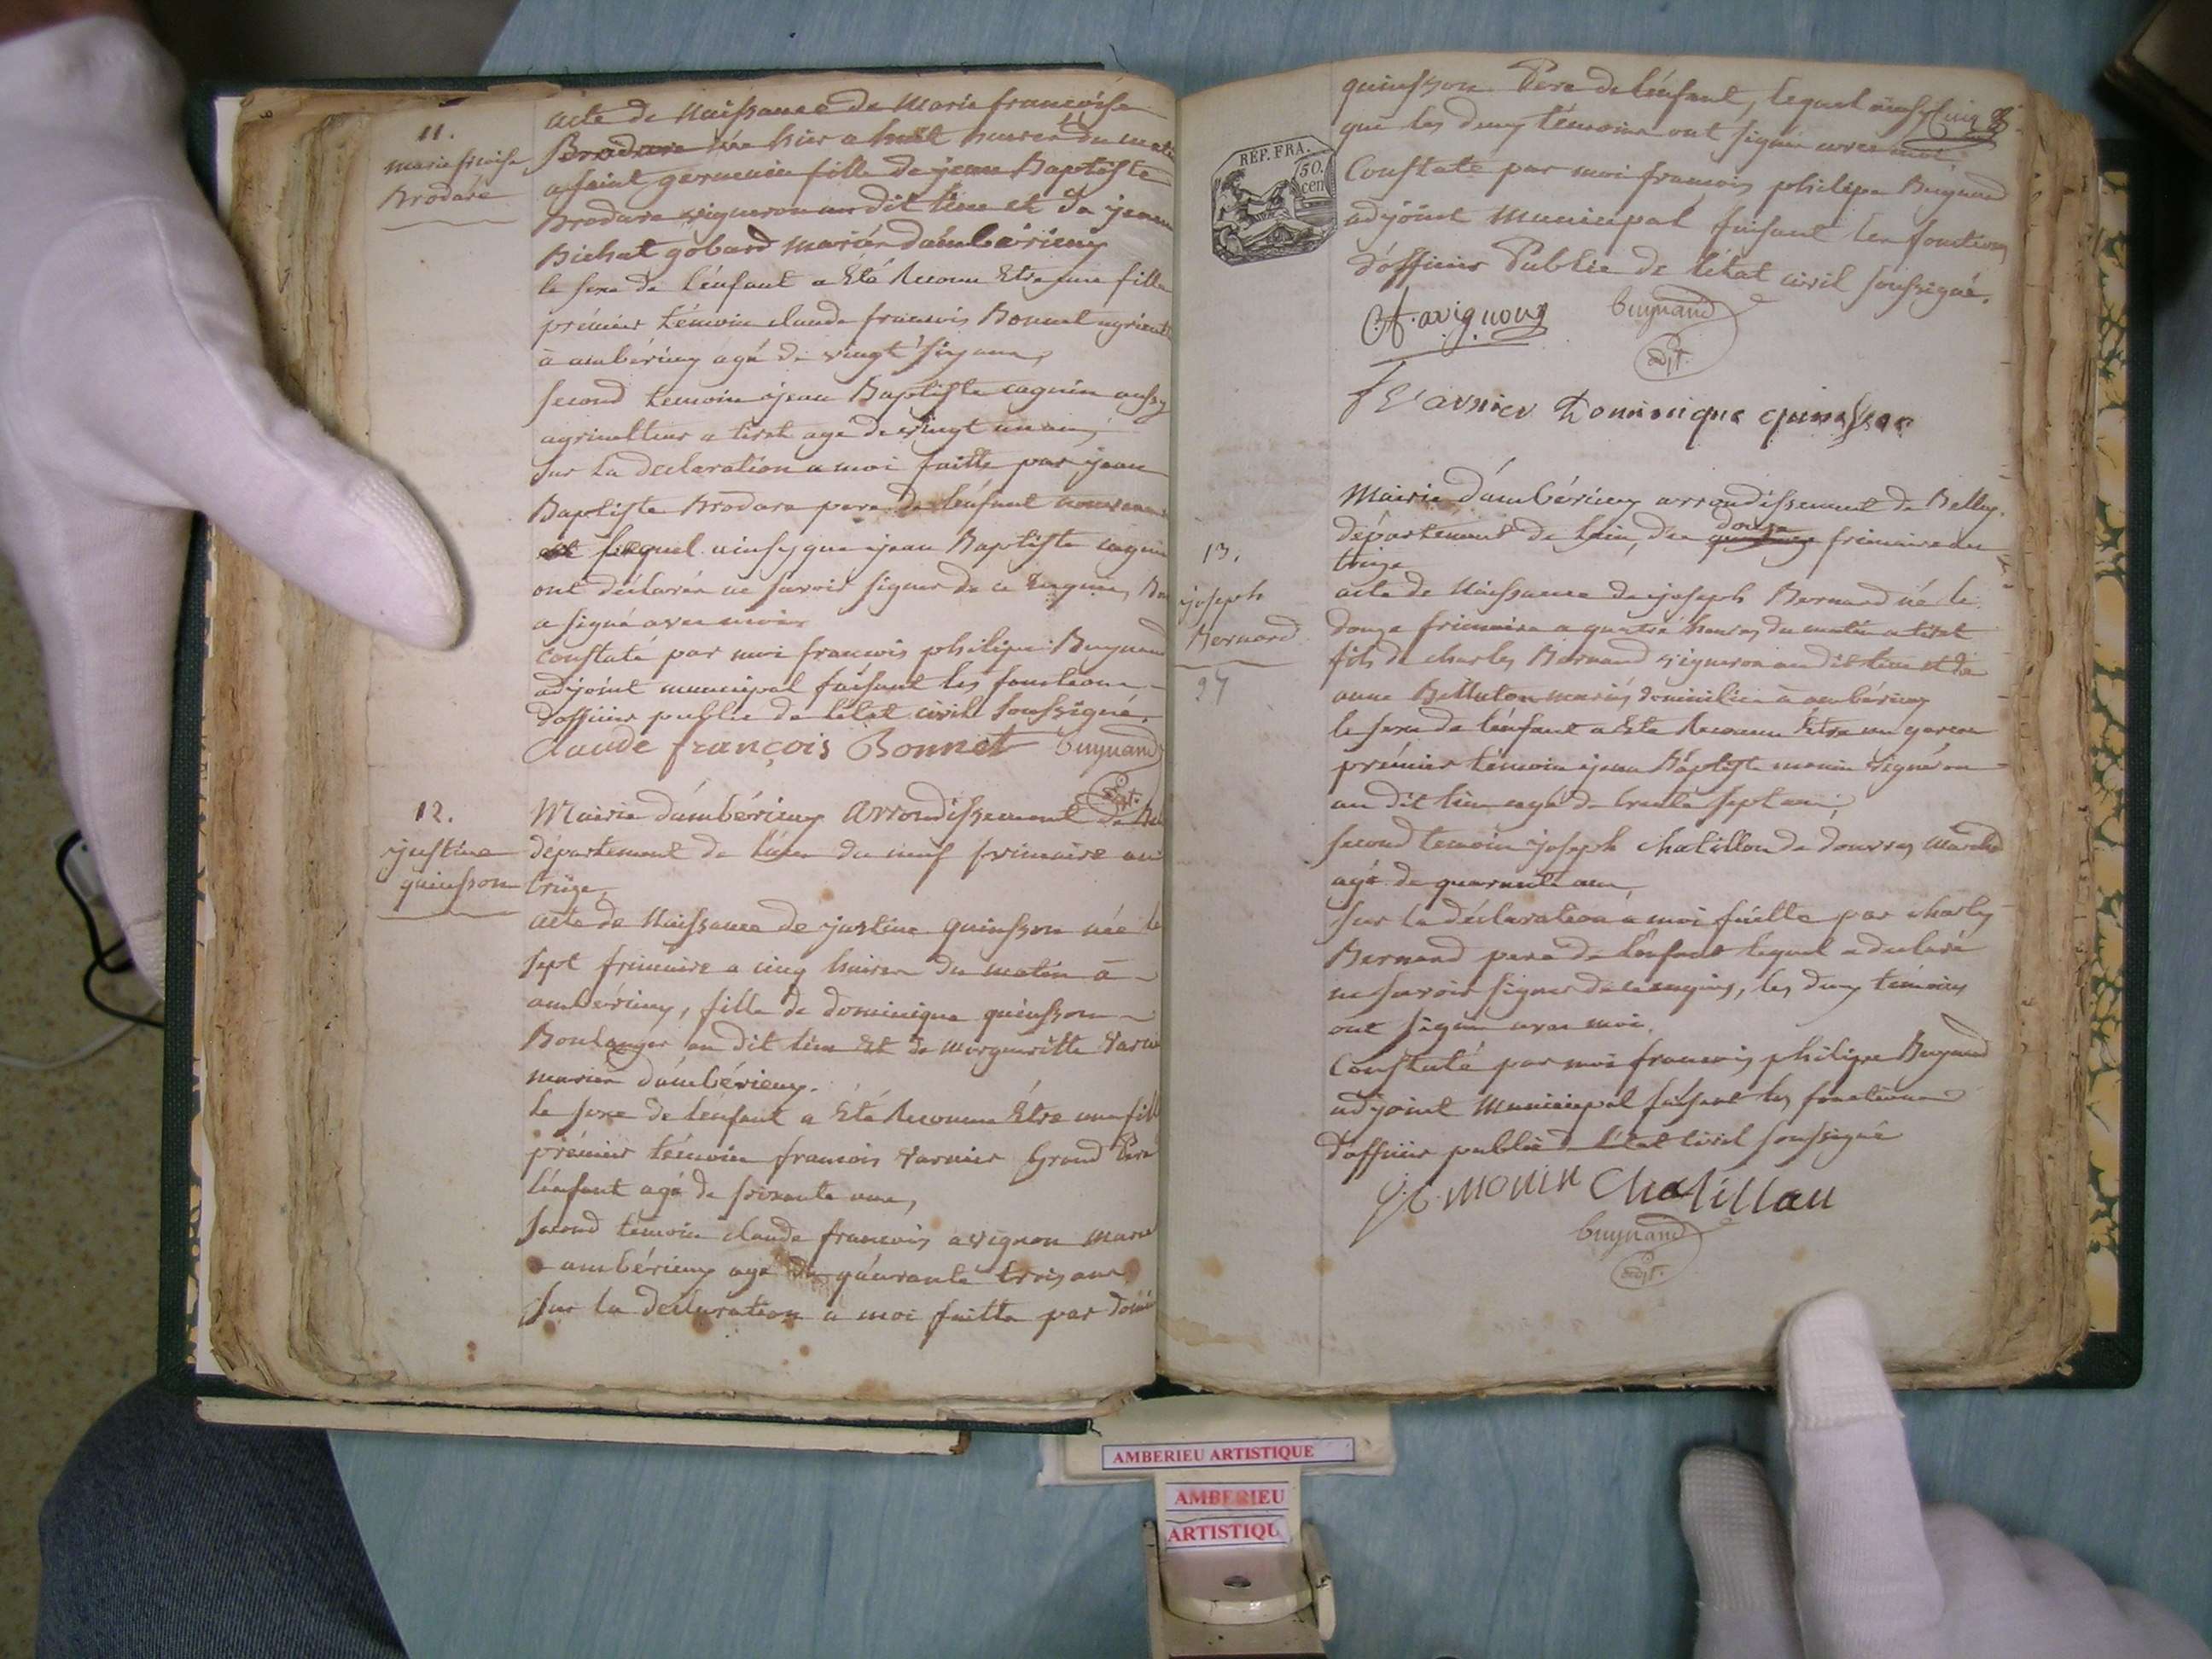 11.
marie fçoise
Brodare
acte de Naissance de Marie françoise
Brodare née hier a huit heures du mat
a saint germain fille de jean Baptiste
Brodare vigneron au dit lieu et de jeanne
Bichat gobard mariés d'ambérieuy
le sexe de l'enfant a Été Reconu Etre une fille
prémier témoin claude francois Bonnet agricult
à ambérieuy agé de vingt six ans,
second temoin jean Baptiste cagnin aussy
agriculteur a tiret agé de vingt un ans,
sur La declaration a moi faitte par jean
Baptiste Brodare pere de l'enfant
lequel ainsy que jean Baptiste cagnin
ont déclarés ne savoir signer de ce Requis, Bo
a signé avec moi
constaté par moi francois philipe Buynand
adjoint municipal faisant les fonctions
d'officier public de l'état civil soussigné.
claude françois Bonnet buynand
adjt.
12.
justine
quinsson
Mairie d'ambérieuy arrondissement de Bel
département de l'ain du neuf frimaire an
treize,
acte de Naissance de justine quinsson née le
sept frimaire a cinq heures du matin à
ambérieuy, fille de dominique quinsson
Boulanger au dit lieu Et de margueritte varni
mariés d'ambérieuy.
le sexe de l'enfant a Été Reconnu Être une fill
prémier témoin francois varnier Grand Pere
l'enfant agé de soixante ans,
second témoin claude francois avignon marc
a ambérieuy agé de quarante trois ans
sur la declaration a moi faitte par domi
quinsson Pere de l'enfant, lequel ainsy
que les deux témoins ont signés avec moi.
Constaté par moi francois philipe Buynand
adjoint Municipal faisant les fonctions
d'officier Public de l'état civil soussigné.
REP. FRA.
50.
cen
Cf. avignon buynand
adjt.
f varnier Dominique quinsson
13.
joseph
Bernard
Mairie d'ambérieuy arrondissement de Belley.
département de l'ain, du douze frimaire an
treize
acte de Naissance de joseph Bernard né le
douze frimaire a quatre heures du matin a tiret
fils de charles Bernard vigneron au dit lieu et de
anne Belluton mariés domiciliés à ambérieuy
le sexe de l'enfant a Eté Reconnu Etre un garcon
prémier témoin jean Baptiste monin vigneron
au dit lieu agé de trente sept ans,
second temoin joseph chatillon de douvres marchd
agé de quarante ans,
sur la déclaration à moi faitte par charles
Bernard pere de l'enfant lequel a déclaré
ne savoir signer de ce enquis, les deux témoins
ont signés avec moi.
Constaté par moi francois philipe Buynand
adjoint Municipal faisant les fonctions
d'officier public de l'état civil soussigné
monin Chatillon
buynand
adjt.
AMBERIEU ARTISTIQUE
AMBERIEU
ARTISTIQU